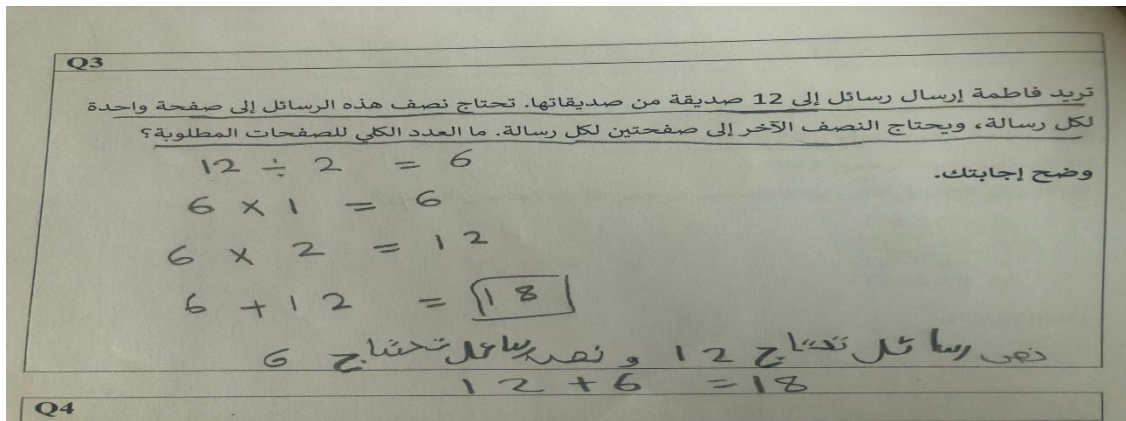 Q3
تريد فاطمة إرسال رسائل إلى 12 صديقة من صديقاتها. تحتاج نصف هذه الرسائل إلى صفحة واحدة
لكل رسالة، ويحتاج النصف الآخر إلى صفحتين لكل رسالة. ما العدد الكلي للصفحات المطلوبة؟
وضح إجابتك.
12 ÷ 2 = 6
6 × 1 = 6
6 × 2 = 12
6 + 12 = 18
نص رسائل تحتاج 12 و نصف رسائل تحتاج 6
12 + 6 = 18
Q4